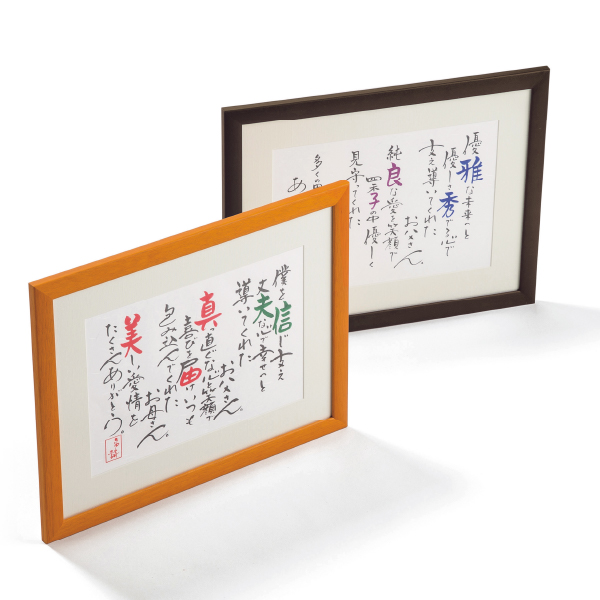 優雅な未来へと
優しさ秀でる心で
支え導いてくれた
お父さん。
純良な愛と笑顔で
子の中優しく
見守ってくれた
多くの
あり
僕を信じ支え
丈夫な心で幸せへと
導いてくれた
お父さん。
真っ直ぐな心と笑顔で
喜びを届けいつも
包み込んでくれた
お母さん。
美しい愛情を
たくさんありがとう。